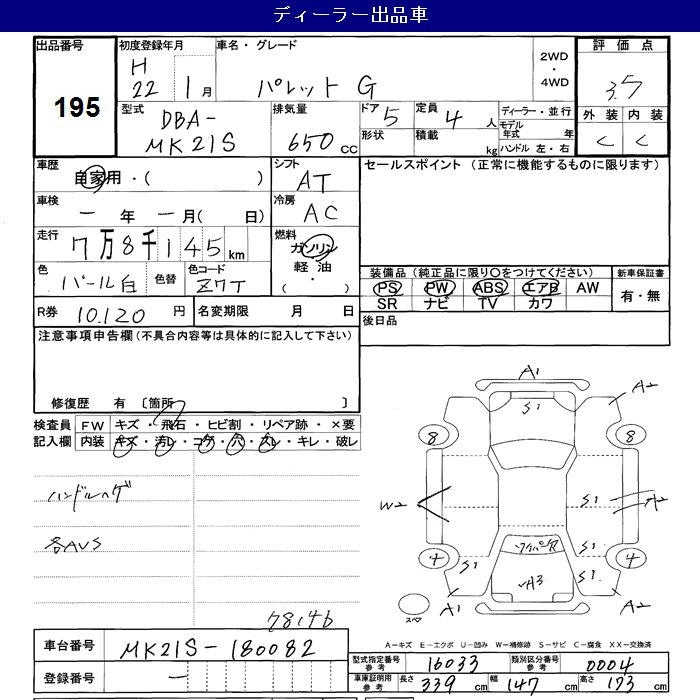 ディーラー出品車
出品番号 初度登録年月 車名・グレード 2WD・4WD 評価点
195
H22 1月 パレット G 3.5
型式 排気量 ドア 定員 ディーラー・並行 外装 内装
DBA-MK21S 650cc 5 4人 モデル年式 年 C C
形状 積載 kg ハンドル 左・右
車歴 シフト セールスポイント (正常に機能するものに限ります)
自家用・( ) AT
車検 冷房
一年 一月( 日) AC
走行 燃料
7万8千145km ガソリン
軽油
・( )
色 色替 色コード 装備品 (純正品に限り○をつけてください) 新車保証書
パール白 Z7T PS PW ABS エアB AW 有・無
SR ナビ TV カワ
R券 10.120円 名変期限 月 日 後日品
注意事項申告欄 (不具合内容等は具体的に記入して下さい)
修復歴 有 〔箇所 〕
検査員 FW キズ・飛石・ヒビ割・リペア跡・×要
記入欄 内装 キズ・汚レ・コゲ・穴・スレ・キレ・破レ
ハンドルハゲ
各AVS
78146
A1
S1
A2
8 8
W2
S1
A2
ワイパーX
S1
4 4
S1
S1
A3
A1
A2
スペア
A-キズ E-エクボ U-凹み W-補修跡 S-サビ C-腐食 XX-交換済
車台番号 MK21S-180082
登録番号 一
型式指定番号 参考 16033 類別区分番号 参考 0004
車庫証明用 参考 長さ 339cm 幅 147cm 高さ 173cm